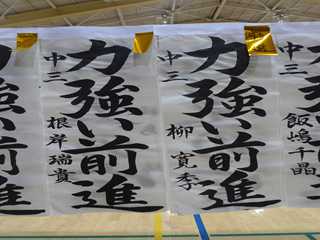 力強い前進
中三 根岸瑞貴
力強い前進
中三 柳寛季
力強い前進
中三 飯嶋千晶